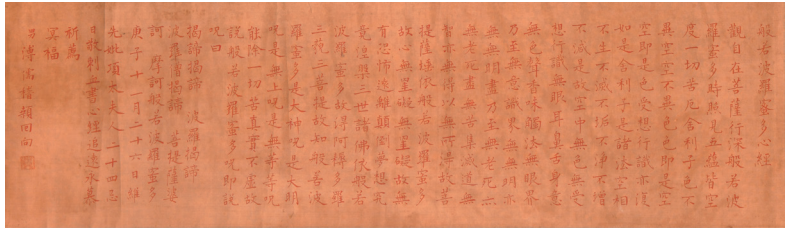 般若波羅蜜多心經
觀自在菩薩行深般若波
羅蜜多時照見五蘊皆空
度一切苦厄舍利子色不
異空空不異色色即是空
空即是色受想行識亦復
如是舍利子是諸法空相
不生不滅不垢不淨不增
不減是故空中無色無受
想行識無眼耳鼻舌身意
無色聲香味觸法無眼界
乃至無意識界無無明亦
無無明盡乃至無老死亦
無老死盡無苦集滅道無
智亦無得以無所得故菩
提薩埵依般若波羅蜜多
故心無罣礙無罣礙故無
有恐怖遠離顛倒夢想究
竟涅槃三世諸佛依般若
波羅蜜多故得阿耨多羅
三藐三菩提故知般若波
羅蜜多是大神咒是大明
咒是無上咒是無等等咒
能除一切苦真實不虛故
說般若波羅蜜多咒即說
咒曰
揭諦揭諦 波羅揭諦
波羅僧揭諦 菩提薩婆
訶 摩訶般若波羅蜜多
庚子十一月二十六日維
先妣項太夫人二十四忌
日敬刺血書心經追遠永慕
祈薦
冥福
男溥儒稽顙回向